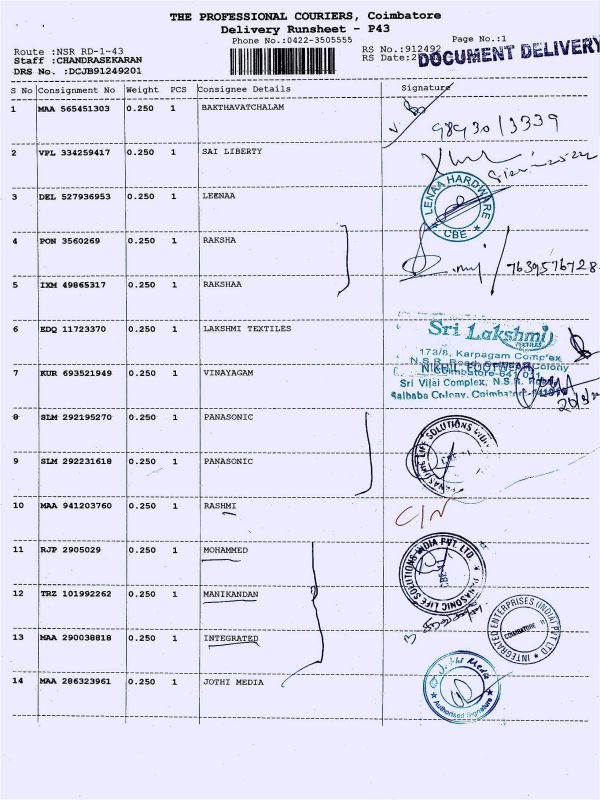 THE PROFESSIONAL COURIERS, Coimbatore
Delivery Runsheet - P43
Phone No.:0422-3505555
Page No.:1
Route :NSR RD-1-43
RS No.:912492
Staff :CHANDRASEKARAN
RS Date:2
DOCUMENT DELIVERY
DRS No. :DCJB91249201
S No Consignment No Weight PCS Consignee Details Signature
1 MAA 565451303 0.250 1 BAKTHAVATCHALAM
98930/3339
2 VPL 334259417 0.250 1 SAI LIBERTY
3 DEL 527936953 0.250 1 LEENAA
LENAA HARDWARE
CBE
4 PON 3560269 0.250 1 RAKSHA
7639576728
5 IXM 49865317 0.250 1 RAKSHAA
6 EDQ 11723370 0.250 1 LAKSHMI TEXTILES
Sri Lakshmi
TEXTILES
173/8, Karpagam Complex
N.S.R. Road, Colony
NIKHIL FOOTWEAR
Coimbatore-641 011
7 KUR 693521949 0.250 1 VINAYAGAM
Sri Vijai Complex, N.S.R. Road
Saibaba Colony, Coimbatore
8 SLM 292195270 0.250 1 PANASONIC
PANASONIC LIFE SOLUTIONS INDIA
9 SLM 292231618 0.250 1 PANASONIC
10 MAA 941203760 0.250 1 RASHMI
C/N
11 RJP 2905029 0.250 1 MOHAMMED
PANASONIC LIFE SOLUTIONS INDIA PVT. LTD.
CBE
12 TRZ 101992262 0.250 1 MANIKANDAN
13 MAA 290038818 0.250 1 INTEGRATED
INTEGRATED ENTERPRISES (INDIA) PVT LTD
COIMBATORE
14 MAA 286323961 0.250 1 JOTHI MEDIA
Jothi Media
Authorised Signature